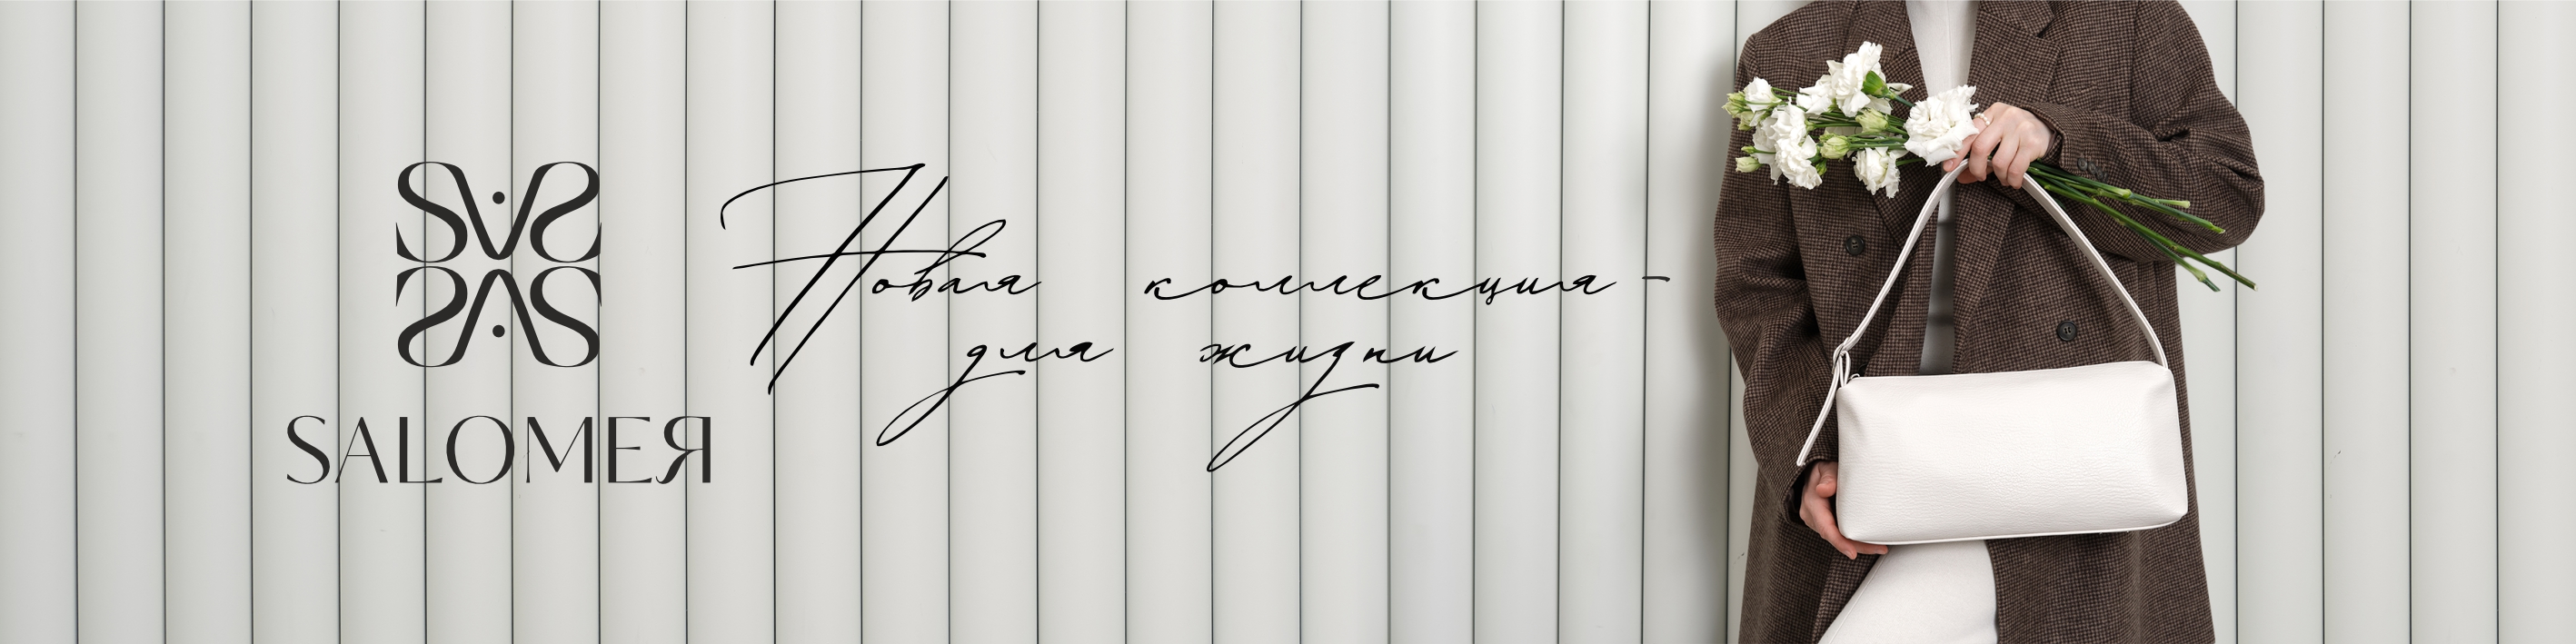 SALOMEЯ
Новая коллекция -
для жизни